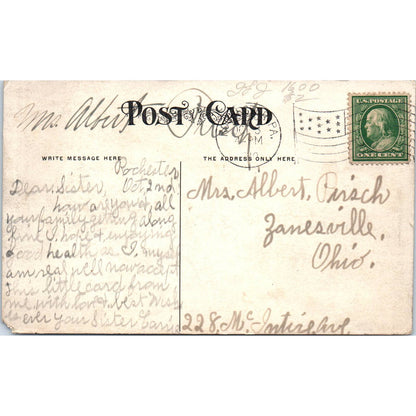 Mrs Albert
POST CARD
WRITE MESSAGE HERE
THE ADDRESS ONLY HERE
U.S. POSTAGE
ONE CENT
PA.
PM
Rochester
Oct, 2nd
Dear Sister,
how are you & all
your family getting along
fine I hope & enjoying
Good health as I myself
am real well now accept
this little card from
me with love & best wishes
as ever your Sister Carrie
Mrs. Albert, Pirsch
Zanesville,
Ohio.
228, Mc Intire Ave